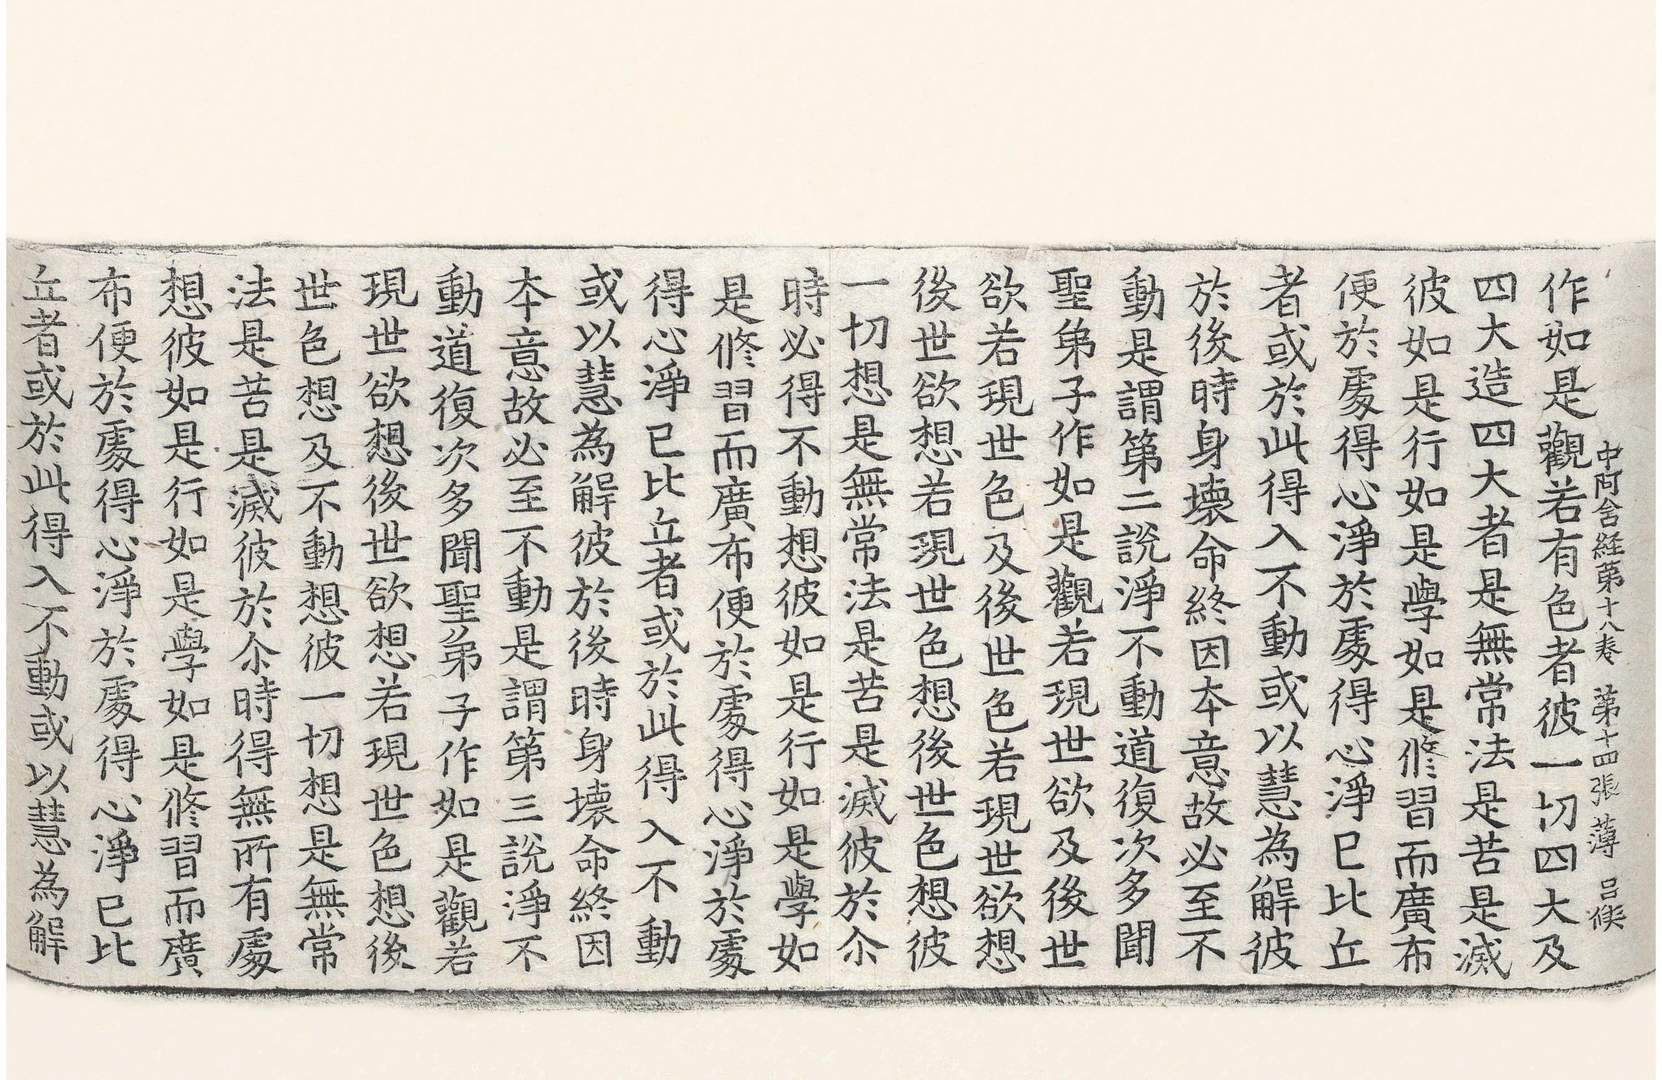 中阿含経第十八卷 第十四張 薄 吕俟
作如是觀若有色者彼一切四大及
四大造四大者是無常法是苦是滅
彼如是行如是學如是修習而廣布
便於處得心淨於處得心淨已比丘
者或於此得入不動或以慧為解彼
於後時身壊命終因本意故必至不
動是謂第二説淨不動道復次多聞
聖弟子作如是觀若現世欲及後世
欲若現世色及後世色若現世欲想
後世欲想若現世色想後世色想彼
一切想是無常法是苦是滅彼於尒
時必得不動想彼如是行如是學如
是修習而廣布便於處得心淨於處
得心淨已比丘者或於此得入不動
或以慧為解彼於後時身壊命終因
本意故必至不動是謂第三説淨不
動道復次多聞聖弟子作如是觀若
現世欲想後世欲想若現世色想後
世色想及不動想彼一切想是無常
法是苦是滅彼於尒時得無所有處
想彼如是行如是學如是修習而廣
布便於處得心淨於處得心淨已比
丘者或於此得入不動或以慧為解